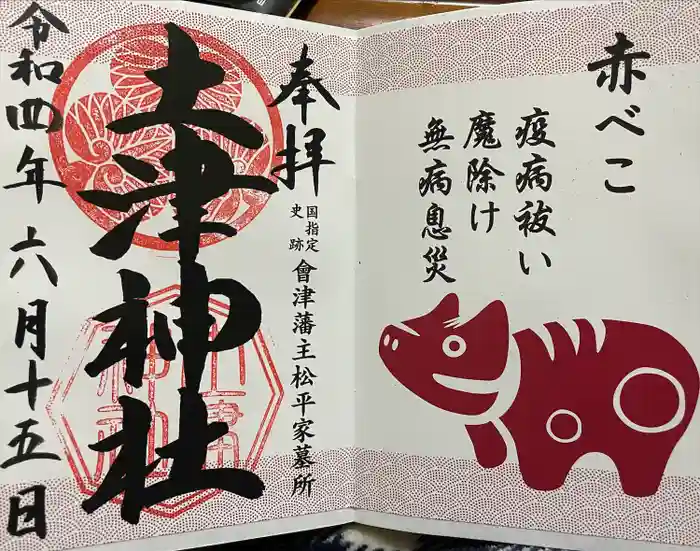 赤べこ
疫病祓い
魔除け
無病息災
奉拝
国指定
史跡
會津藩主松平家墓所
土津神社
令和四年 六月十五日